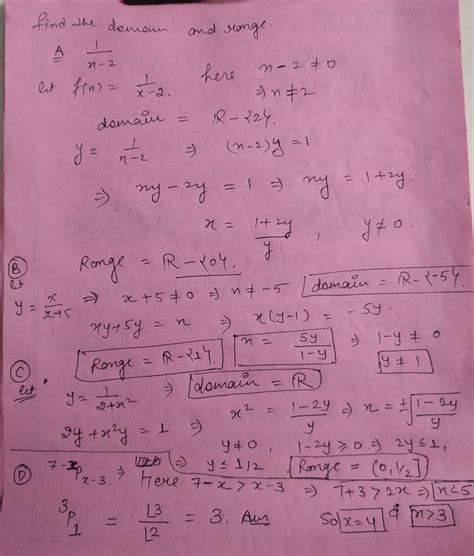 find the domain and range.
A 1/(x-2)
let f(x) = 1/(x-2). here x-2 ≠ 0
⇒ x ≠ 2
domain = R-{2}.
y = 1/(x-2) ⇒ (x-2)y = 1
⇒ xy-2y = 1 ⇒ xy = 1+2y
x = (1+2y)/y , y ≠ 0.
Range = R-{0}.
(B) let
y = x/(x+5) ⇒ x+5 ≠ 0 ⇒ x ≠ -5 domain = R-{-5}
xy+5y = x ⇒ x(y-1) = -5y
Range = R-{1} x = 5y/(1-y) ⇒ 1-y ≠ 0
y ≠ 1
(C) let y = 1/(2+x²) ⇒ domain = R
2y+x²y = 1 ⇒ x² = (1-2y)/y ⇒ x = ±√((1-2y)/y)
y ≠ 0, 1-2y ≥ 0 ⇒ 2y ≤ 1,
⇒ y ≤ 1/2 Range = (0, 1/2]
(D) 7-xPx-3 ⇒ Here 7-x > x-3 ⇒ 7+3 > 2x ⇒ x<5
³P₁ = ⌊3/⌊2 = 3. Ans So x=4 & x>3